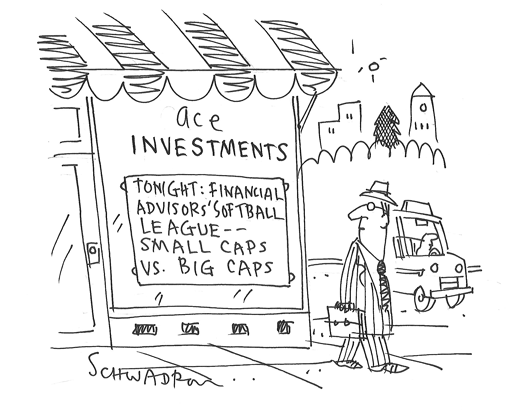 ace
INVESTMENTS
TONIGHT: FINANCIAL
ADVISORS' SOFTBALL
LEAGUE--
SMALL CAPS
VS. BIG CAPS
SCHWADRON